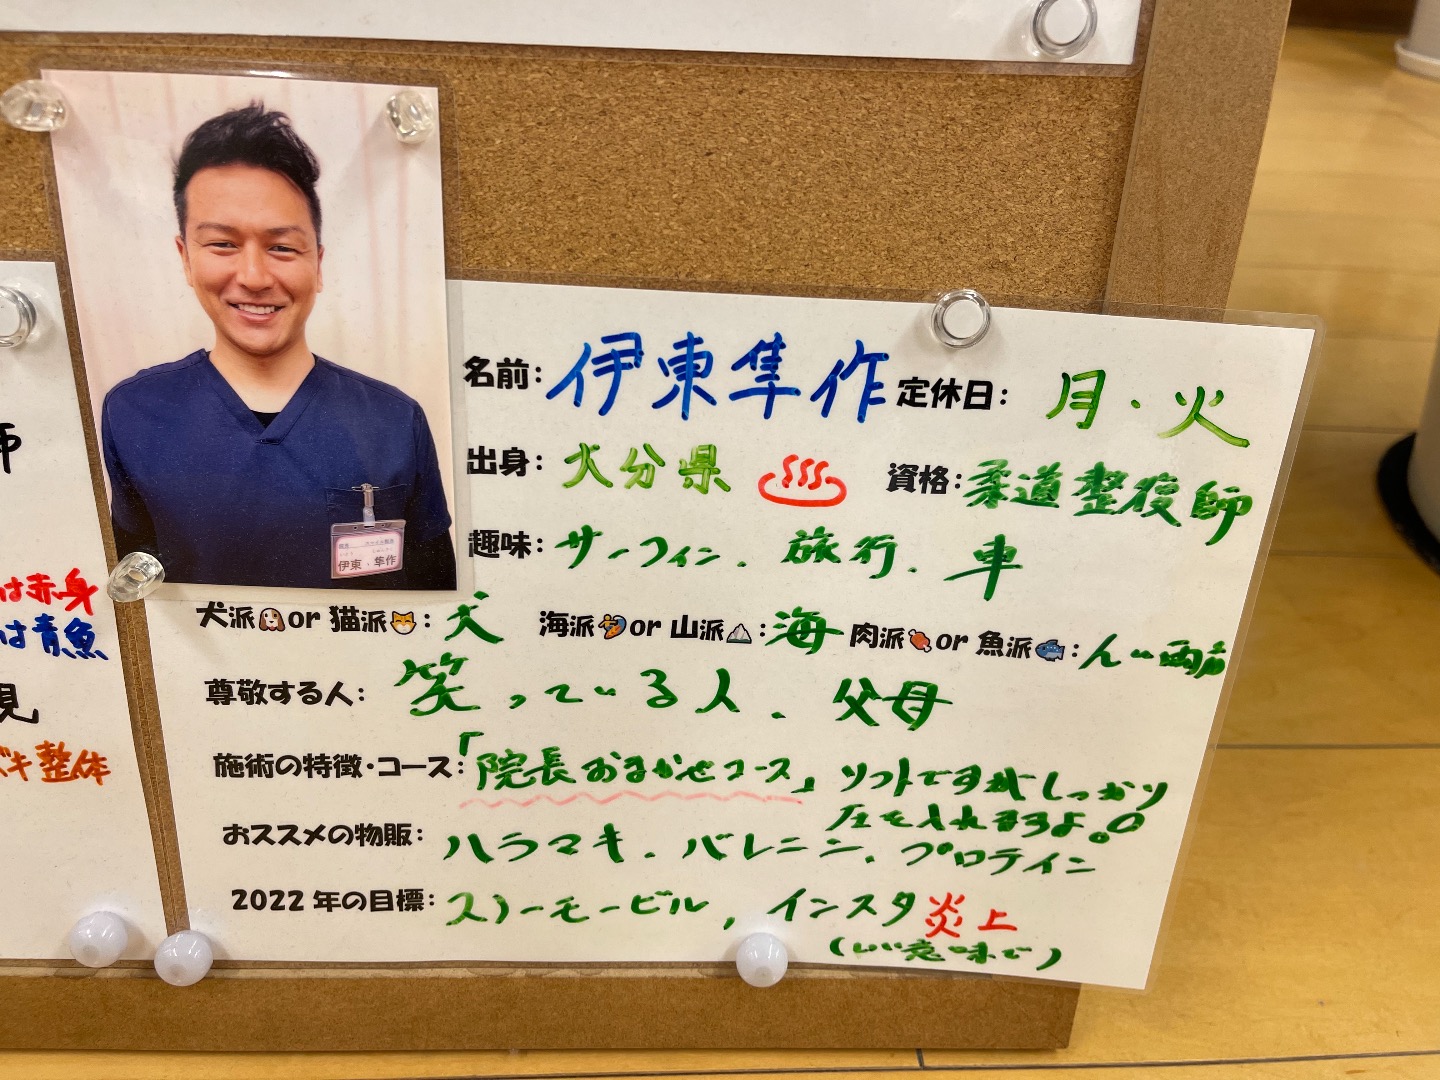 師
は赤身
は青魚
見
ズキ整体
伊東 隼作
名前: 伊東隼作 定休日: 月・火
出身: 大分県 ♨ 資格: 柔道整復師
趣味: サーフィン、旅行、車
犬派or 猫派: 犬 海派or 山派: 海 肉派or 魚派: んー両方
尊敬する人: 笑っている人、父母
施術の特徴・コース: 「院長おまかせコース」 ソフトですがしっかり
圧を入れますよ。
おススメの物販: ハラマキ、バレニン、プロテイン
2022 年の目標: スノーモービル、インスタ炎上
(いい意味で)